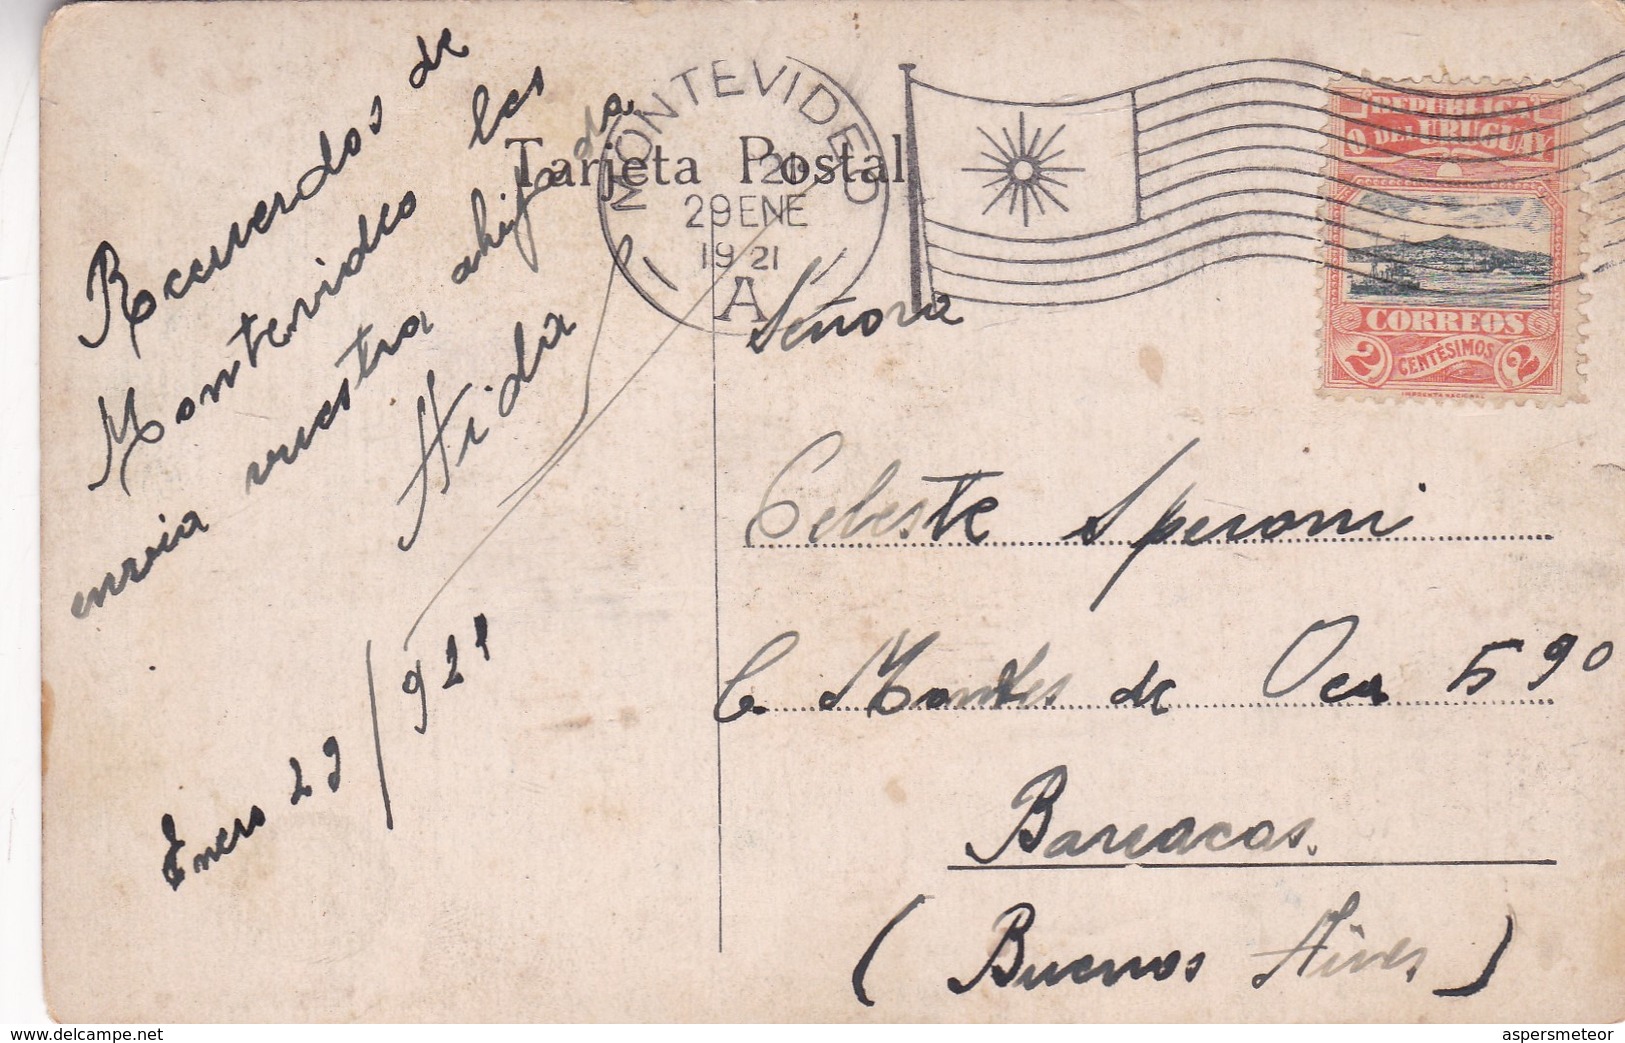 Recuerdos de
Montevideo les
envia vuestra ahijada
Aida
Enero 29/921
Tarjeta Postal
MONTEVIDEO
21
29 ENE
1921
A
REPUBLICA
O. DEL URUGUAY
CORREOS
2 CENTÉSIMOS 2
IMPRENTA NACIONAL
Señora
Celeste Speroni
C. Montes de Oca 590
Barracas.
(Buenos Aires)
delcampe.net
aspersmeteor